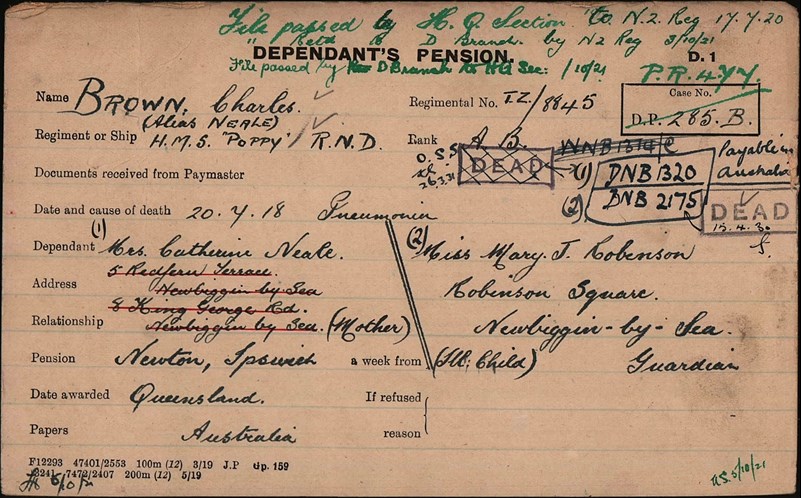 File passed by H.Q. Section to N.2. Reg 17.7.20
" Retd to D Branch. by N2 Reg 3/10/21
DEPENDANT'S PENSION. D. 1
File passed by D Branch to HQ Sec: /10/21
P.R. 477.
Name BROWN, Charles.
(Alias NEALE)
Regimental No. TZ/8845
Case No.
D.P. 285. B.
Regiment or Ship H.M.S. "POPPY" R.N.D.
Rank A B.
WNB1314/C
Payable in
Australia
O.S.S
26.3.21
DEAD
(1) DNB 1320
(2) BNB 2175
DEAD
15.4.30
Documents received from Paymaster
Date and cause of death 20.7.18 Pneumonia
Dependant (1) Mrs. Catherine Neale. (2) Miss Mary. J. Robinson
5 Redfern Terrace.
Address Newbiggin by Sea Robinson Square.
8 King George Rd.
Relationship Newbiggin by Sea. (Mother) Newbiggin-by-Sea.
Pension Newton, Ipswich a week from (Ill: Child) Guardian
Date awarded Queensland. If refused
Papers Australia reason
F12293 47401/2553 100m (12) 3/19 J.P Gp. 159
3241 7472/2407 200m (12) 5/19